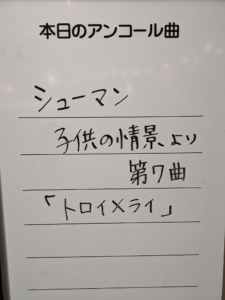 本日のアンコール曲
シューマン
子供の情景より
第7曲
「トロイメライ」